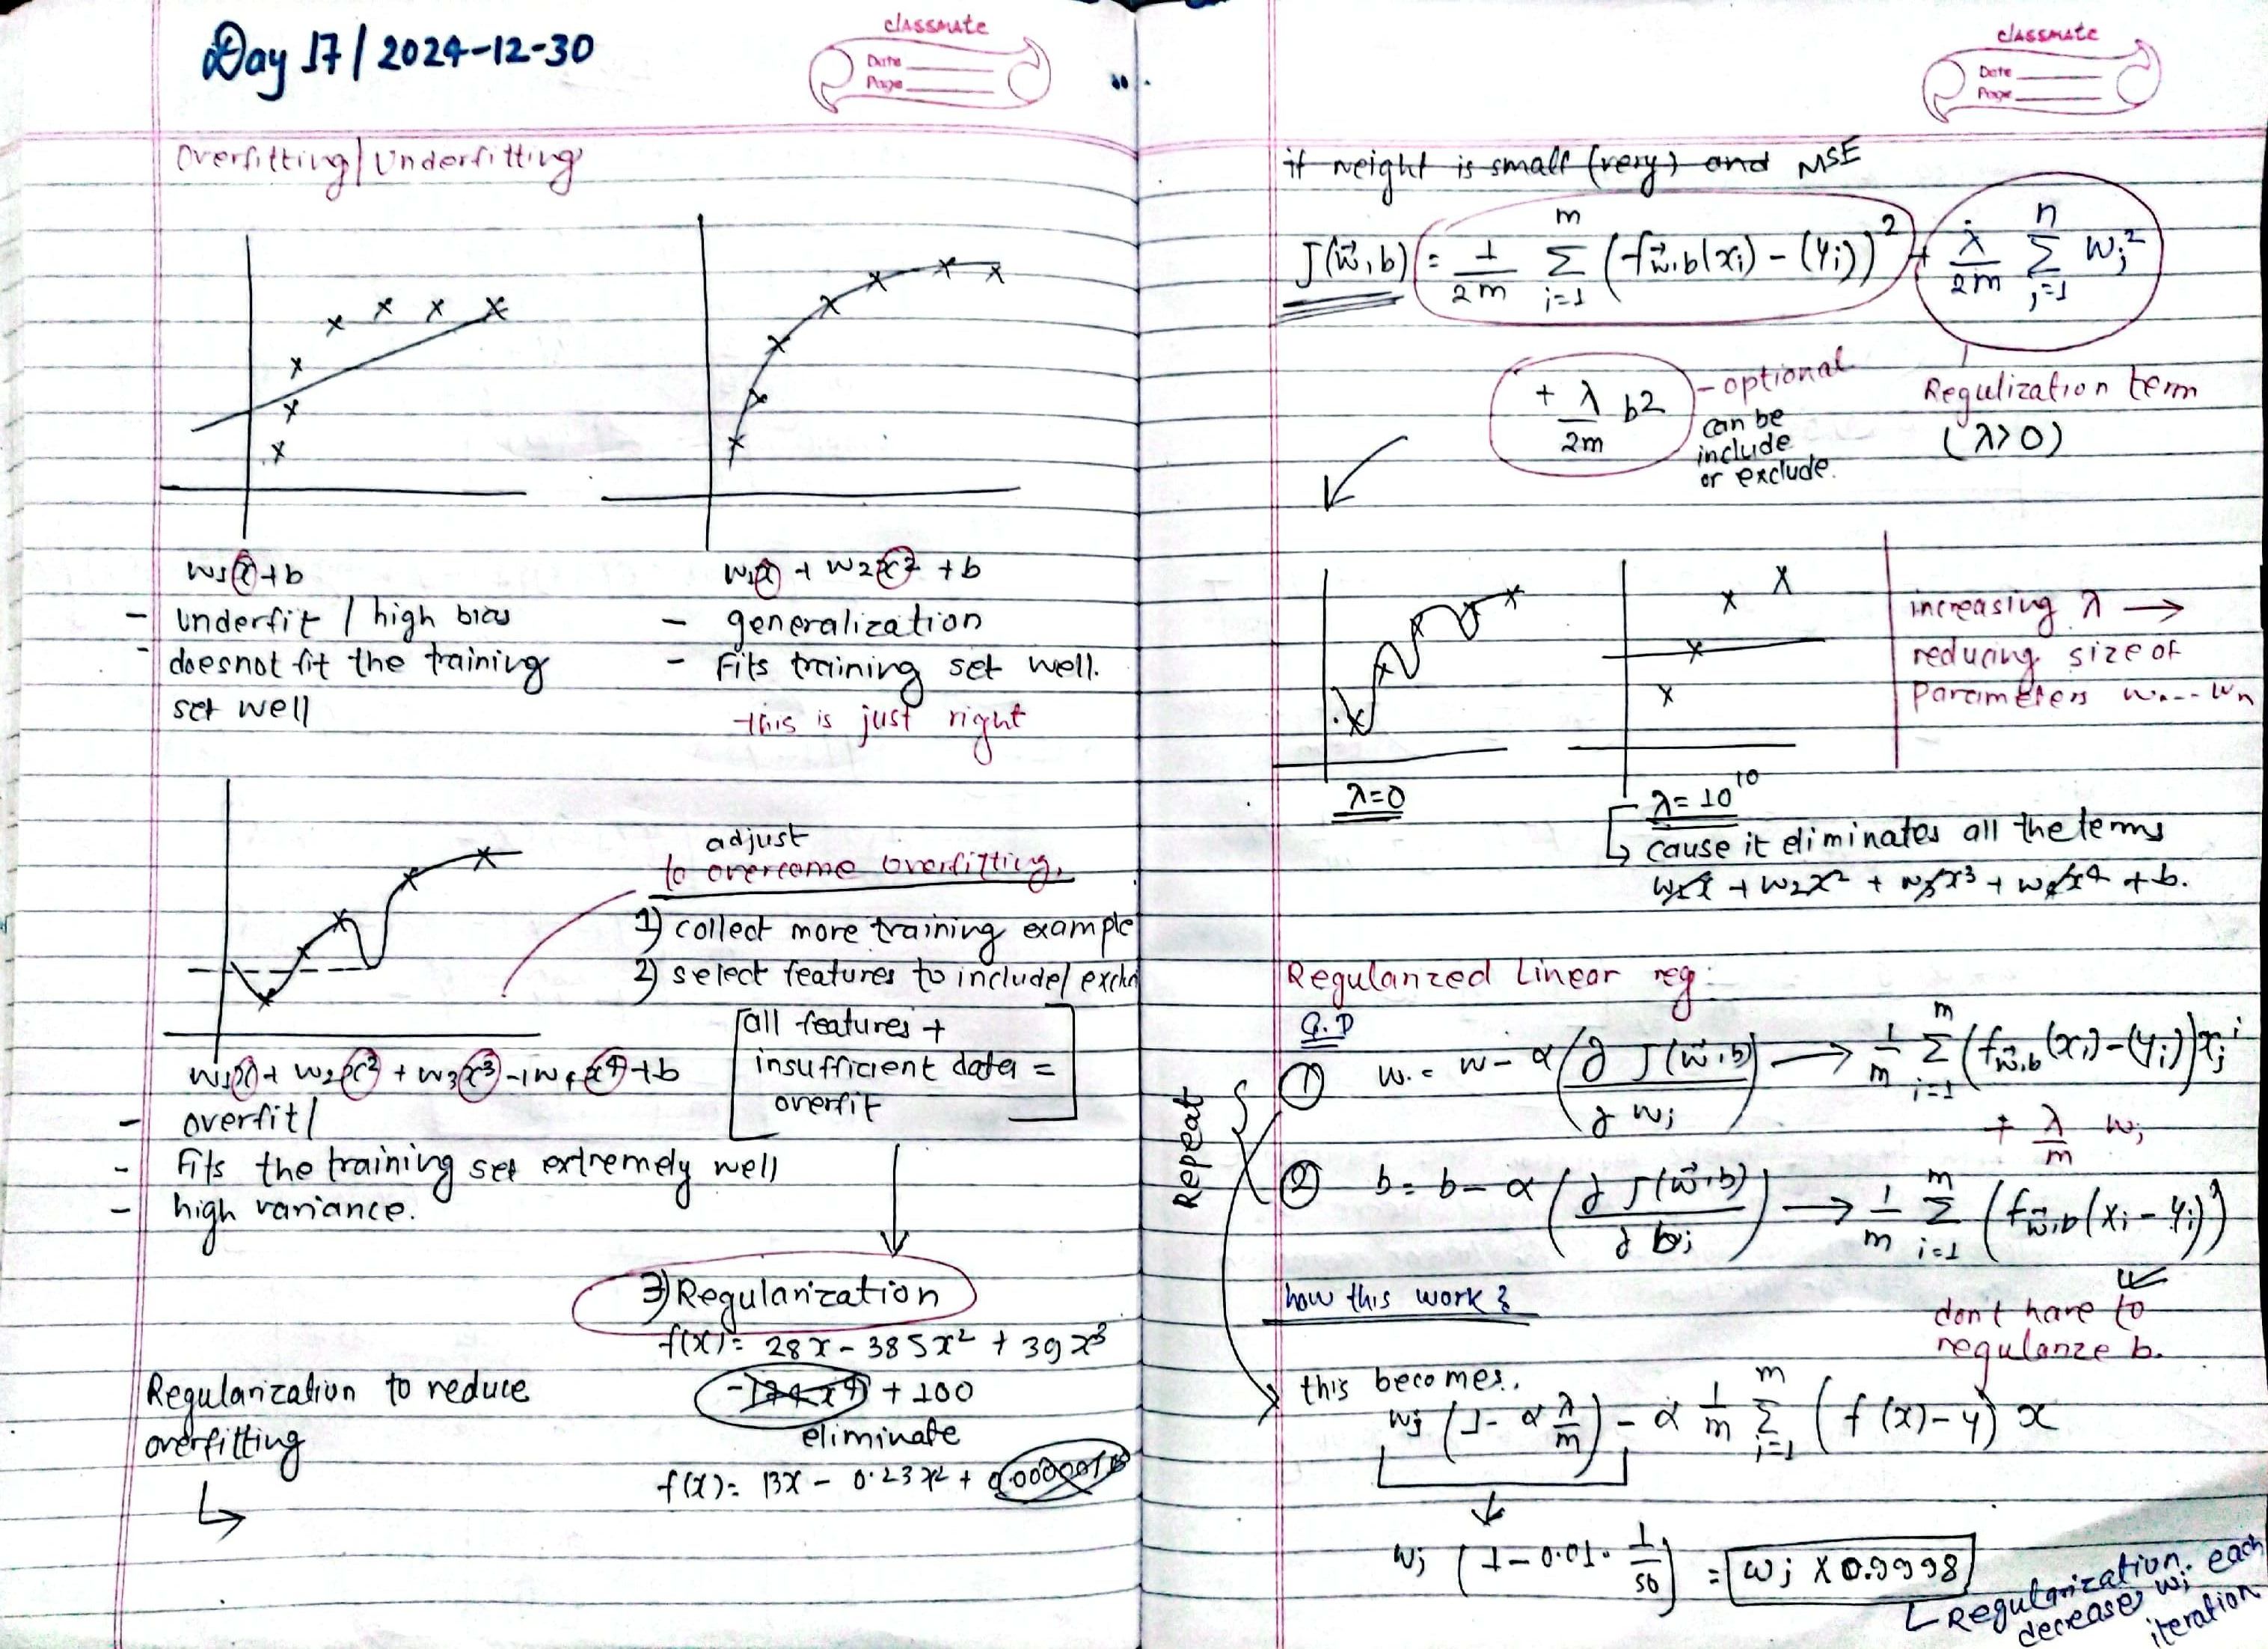 Day 17 / 2024-12-30
classmate
Date
Page
Overfitting / Underfitting
w₁x + b
- Underfit / high bias
- doesnot fit the training
set well
w₁x + w₂x² + b
- generalization
- Fits training set well.
this is just right
adjust
to overcome overfitting,
1) collect more training example
2) select features to include/
all features +
insufficient data =
overfit
w₁x + w₂x² + w₃x³ + w₄x⁴ + b
- overfit /
- Fits the training set extremely well
- high variance.
3) Regularization
f(x) = 28x - 385x² + 39x³
+ 100
eliminate
f(x) = 13x - 0.23x² +
Regularization to reduce
overfitting
↳
classmate
Date
Page
if weight is small (very) and MSE
J(w⃗,b) = 1/2m Σ i=1 m (f w⃗,b(xi) - (yi))² + λ/2m Σ j=1 n wj²
+ λ/2m b2 - optional
can be
include
or exclude.
Regulization term
(λ>0)
λ=0
λ=10¹⁰
↳ cause it eliminates all the terms
w₁x + w₂x² + w₃x³ + w₄x⁴ + b.
increasing λ →
reducing size of
parameters w₁...wn
Regularized Linear reg:
G.D
Repeat
① w = w - α(∂J(w⃗,b)/∂wj) → 1/m Σ i=1 m (f w⃗,b(xi) - (yi))xj i
+ λ/m wj
② b = b - α(∂J(w⃗,b)/∂bj) → 1/m Σ i=1 m (f w⃗,b(xi - yi))
don't have to
regularize b.
how this work?
this becomes.
wj (1 - α λ/m) - α 1/m Σ i=1 m (f(x) - y) x
wj (1 - 0.01 · 1/50) = wj x 0.9998
↳ Regularization. each
decreases wj iteration